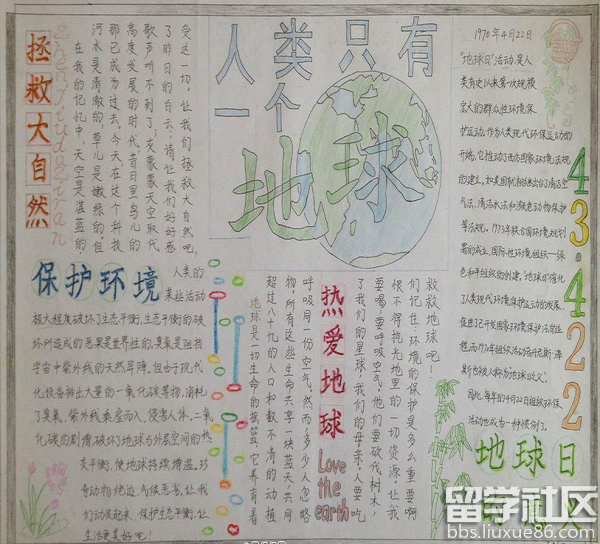 人类只有
一个
地球
拯救大自然
在我的记忆中，天空是湛蓝的
河水是清澈的，草儿是嫩绿的，但
那已成为过去。今天，在这个科技
高度发展的时代，昔日里鸟儿的
歌声听不到了，灰蒙蒙天空取代
了昨日的白云，请让我们好好感
受这一切，让我们拯救大自然吧
保护环境
人类的
某些活动
极大程度破坏了生态平衡，生态平衡的破
坏所造成的恶果是世界性的，臭氧是阻挡
宇宙中紫外线的天然屏障，但由于现代
化设备排出大量的一氧化碳等物，消耗
了臭氧，紫外线乘虚而入，侵害人体，二氧
化碳的剧增破坏了地球与外层空间的热
交平衡，使地球持续增温，珍
奇动物绝迹，气候恶劣，让我
们动员起来，保护生态平衡，让
生活更美好吧！
热爱地球
Love
the
earth
地球是一切生命的摇篮，它养育着
超过八十亿的人口和数不清的动植
物，所有这些生命共享一块蓝天，共同
呼吸同一份空气，然而多少人忽略
了我们的星球，我们的母亲，人要吃
要喝，要呼吸空气，他们要砍伐树木，
恨不得挖光地里的一切资源，让我
们记住，环境的保护是多么重要啊
救救地球吧！
1970年4月22日
"地球日"活动，是人
类有史以来第一次规模
宏大的群众性环境保
护运动，作为人类现代环保运动的
开端，它推动了西方国家环境法规
的建立，如美国就相继出台了清洁空
气法、清洁水法和濒危动物保护
等法规，1973年联合国环境规划
署的成立，国际性环境组织—绿
色和平组织的创建，"地球日"催化
了人类现代环境保护运动的发展
促进了已开发国家环境保护立法的进
程，而1970年组织活动
斯也被人称为地球日之父。
因此，每年的4月22日组织环保
活动也成为一种惯例了。
43.422
地球日
与追人
留学社区
bbs.liuxue86.com